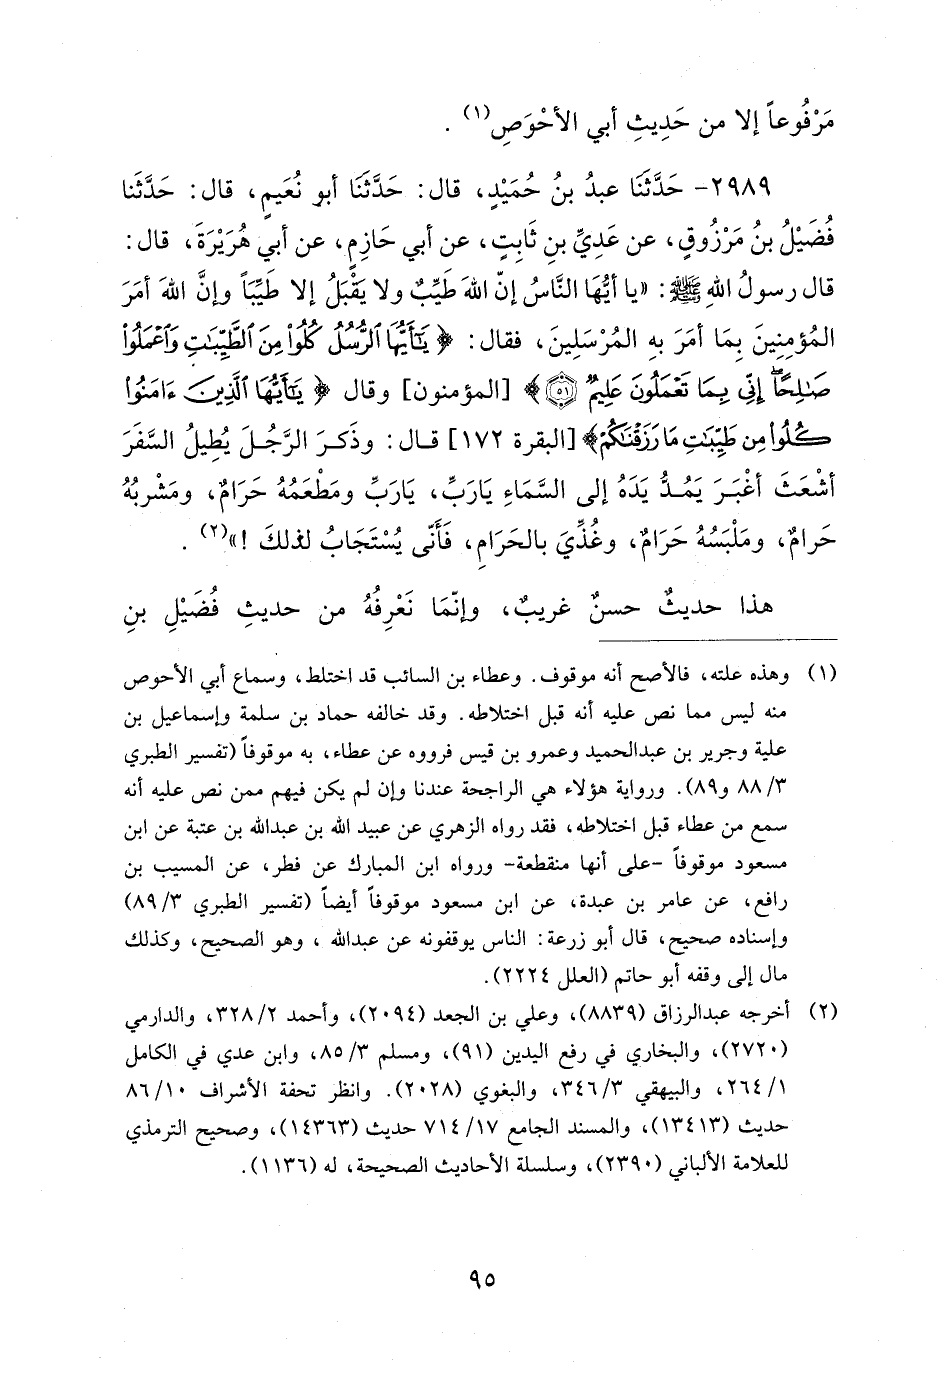 مَرْفُوعاً إلا من حَدِيثِ أبي الأحْوَصِ(١) .
٢٩٨٩- حَدَّثَنَا عبدُ بنُ حُمَيْدٍ، قال: حَدَّثَنَا أبو نُعَيمٍ، قال: حَدَّثَنا
فُضَيْلُ بنُ مَرْزُوقٍ، عن عَدِيِّ بنِ ثَابِتٍ، عن أبي حَازِمٍ، عن أبي هُرَيْرَةَ، قال:
قال رسولُ اللهِ ﷺ: «يا أيُّهَا النَّاسُ إنّ اللهَ طَيِّبٌ ولا يَقْبَلُ إلا طَيِّبَاً وإنَّ اللهَ أمَرَ
المُؤمِنِينَ بِمَا أمَرَ به المُرْسَلِينَ، فقال: ﴿ يَٰٓأَيُّهَا ٱلرُّسُلُ كُلُوا۟ مِنَ ٱلطَّيِّبَٰتِ وَٱعْمَلُوا۟
صَٰلِحًاۖ إِنِّى بِمَا تَعْمَلُونَ عَلِيمٌ ۝٥١ ﴾ [المؤمنون] وقال ﴿ يَٰٓأَيُّهَا ٱلَّذِينَ ءَامَنُوا۟
كُلُوا۟ مِن طَيِّبَٰتِ مَا رَزَقْنَٰكُمْ﴾ [البقرة ١٧٢] قال: وذَكرَ الرَّجُلَ يُطِيلُ السَّفَرَ
أشْعَثَ أغْبَرَ يَمُدُّ يَدَهُ إلى السَّمَاءِ يَارَبِّ، يَارَبِّ ومَطْعَمُهُ حَرَامٌ، ومَشْربُهُ
حَرامٌ، ومَلْبَسُهُ حَرَامٌ، وغُذِّيَ بالحَرَامِ، فَأَنّى يُسْتَجَابُ لذلكَ !»(٢) .
هذا حديثٌ حسنٌ غريبٌ، وإنّمَا نَعْرِفُهُ من حديثِ فُضَيْلِ بنِ
(١) وهذه علته، فالأصح أنه موقوف. وعطاء بن السائب قد اختلط، وسماع أبي الأحوص
منه ليس مما نص عليه أنه قبل اختلاطه. وقد خالفه حماد بن سلمة وإسماعيل بن
علية وجرير بن عبدالحميد وعمرو بن قيس فرووه عن عطاء، به موقوفاً (تفسير الطبري
٣/ ٨٨ و٨٩). ورواية هؤلاء هي الراجحة عندنا وإن لم يكن فيهم ممن نص عليه أنه
سمع من عطاء قبل اختلاطه، فقد رواه الزهري عن عبيد الله بن عبدالله بن عتبة عن ابن
مسعود موقوفاً -على أنها منقطعة- ورواه ابن المبارك عن فطر، عن المسيب بن
رافع، عن عامر بن عبدة، عن ابن مسعود موقوفاً أيضاً (تفسير الطبري ٣/ ٨٩)
وإسناده صحيح، قال أبو زرعة: الناس يوقفونه عن عبدالله ، وهو الصحيح، وكذلك
مال إلى وقفه أبو حاتم (العلل ٢٢٢٤).
(٢) أخرجه عبدالرزاق (٨٨٣٩)، وعلي بن الجعد (٢٠٩٤)، وأحمد ٢/ ٣٢٨، والدارمي
(٢٧٢٠)، والبخاري في رفع اليدين (٩١)، ومسلم ٣/ ٨٥، وابن عدي في الكامل
١/ ٢٦٤، والبيهقي ٣/ ٣٤٦، والبغوي (٢٠٢٨). وانظر تحفة الأشراف ١٠/ ٨٦
حديث (١٣٤١٣)، والمسند الجامع ١٧/ ٧١٤ حديث (١٤٣٦٣)، وصحيح الترمذي
للعلامة الألباني (٢٣٩٠)، وسلسلة الأحاديث الصحيحة، له (١١٣٦).
٩٥